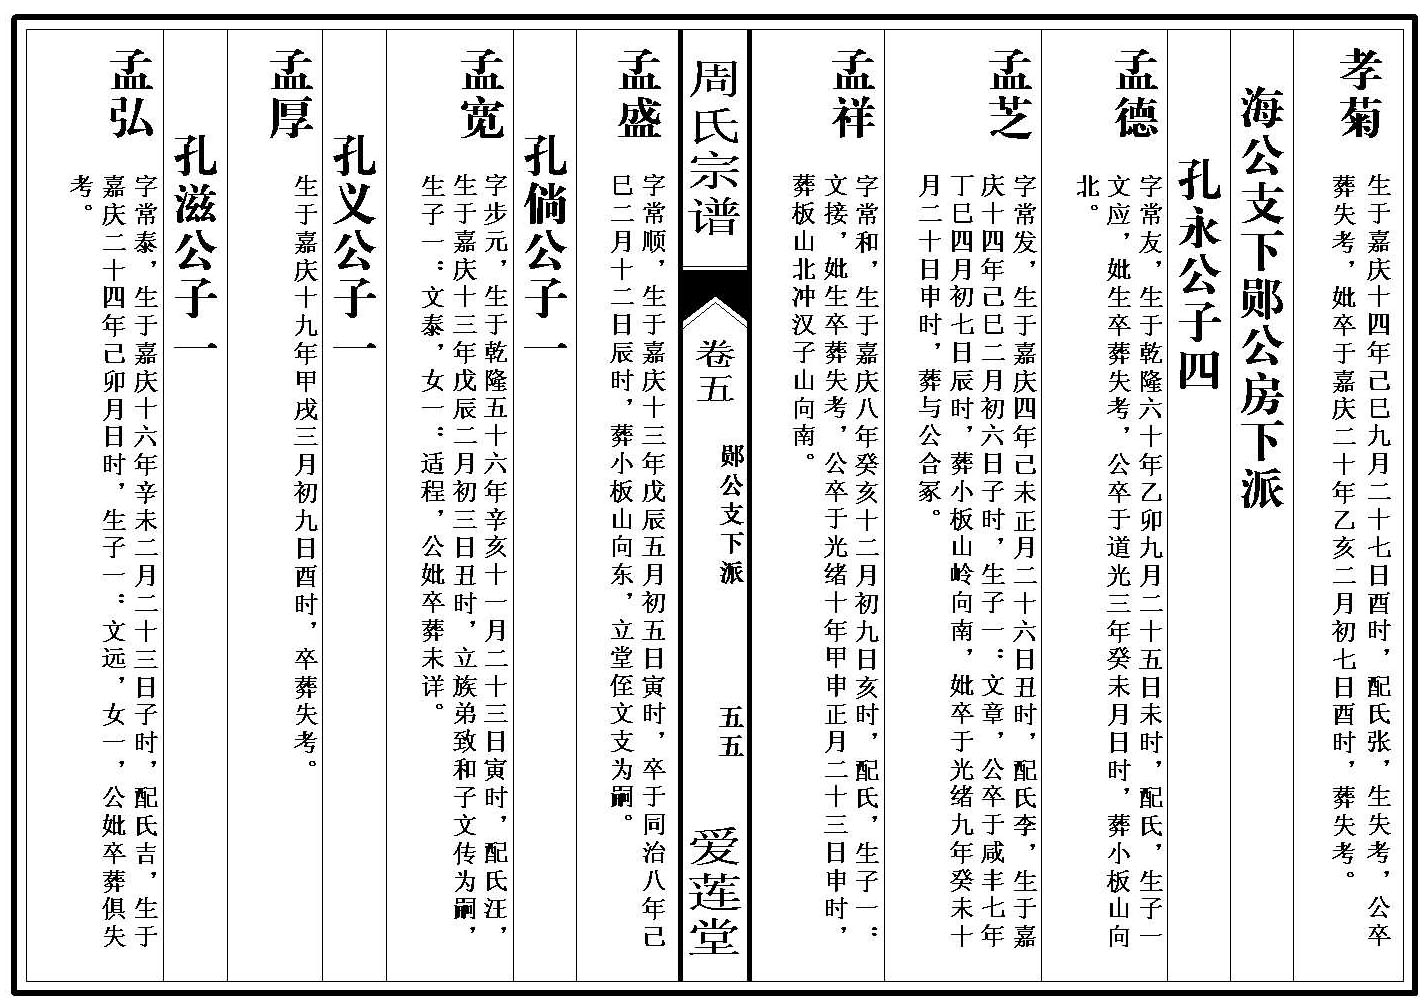 孝菊
生于嘉庆十四年己巳九月二十七日酉时，配氏张，生失考，公卒
葬失考，妣卒于嘉庆二十年乙亥二月初七日酉时，葬失考。
海公支下郧公房下派
孔永公子四
孟德
字常友，生于乾隆六十年乙卯九月二十五日未时，配氏，生子一
文应，妣生卒葬失考，公卒于道光三年癸未月日时，葬小板山向
北。
孟芝
字常发，生于嘉庆四年己未正月二十六日丑时，配氏李，生于嘉
庆十四年己巳二月初六日子时，生子一：文章，公卒于咸丰七年
丁巳四月初七日辰时，葬小板山岭向南，妣卒于光绪九年癸未十
月二十日申时，葬与公合冢。
孟祥
字常和，生于嘉庆八年癸亥十二月初九日亥时，配氏，生子一：
文接，妣生卒葬失考，公卒于光绪十年甲申正月二十三日申时，
葬板山北冲汉子山向南。
周氏宗谱
卷五
郧公支下派
五五
爱莲堂
孟盛
字常顺，生于嘉庆十三年戊辰五月初五日寅时，卒于同治八年己
巳二月十二日辰时，葬小板山向东，立堂侄文支为嗣。
孔倘公子一
孟宽
字步元，生于乾隆五十六年辛亥十一月二十三日寅时，配氏汪，
生于嘉庆十三年戊辰二月初三日丑时，立族弟致和子文传为嗣，
生子一：文泰，女一：适程，公妣卒葬未详。
孔义公子一
孟厚
生于嘉庆十九年甲戌三月初九日酉时，卒葬失考。
孔滋公子一
孟弘
字常泰，生于嘉庆十六年辛未二月二十三日子时，配氏吉，生于
嘉庆二十四年己卯月日时，生子一：文远，女一，公妣卒葬俱失
考。